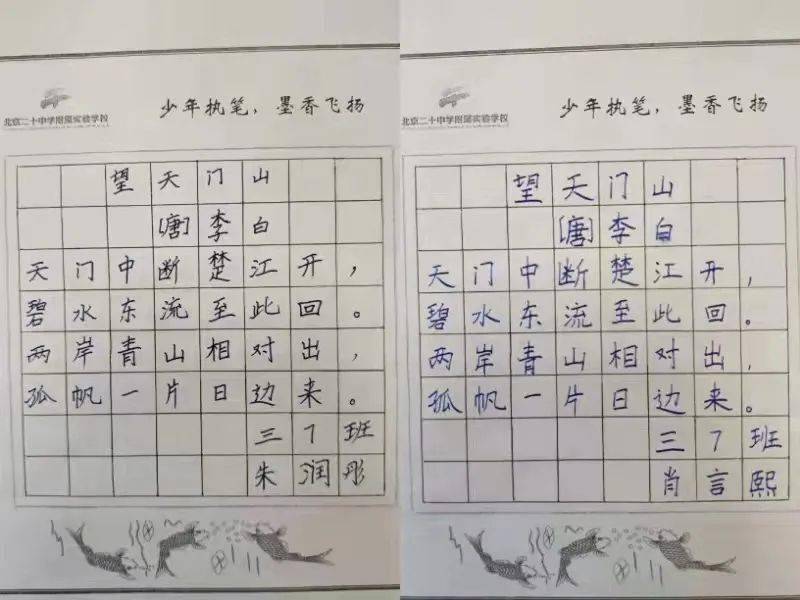 少年执笔，墨香飞扬
北京二十中学附属实验学校
望天门山
[唐]李白
天门中断楚江开，
碧水东流至此回。
两岸青山相对出，
孤帆一片日边来。
三7班
朱润彤
少年执笔，墨香飞扬
北京二十中学附属实验学校
望天门山
[唐]李白
天门中断楚江开，
碧水东流至此回。
两岸青山相对出，
孤帆一片日边来。
三7班
肖言熙